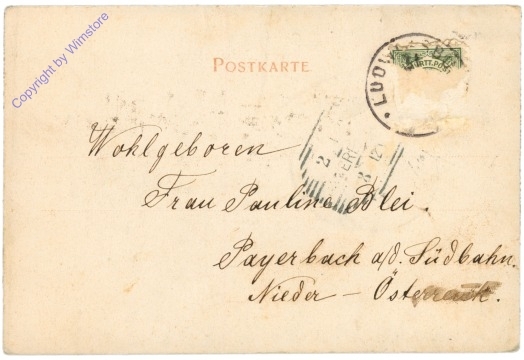 Copyright by Wimstore
POSTKARTE
WÜRTT. POST
Wohlgeboren
Frau Pauline Blei.
Payerbach a/d. Südbahn.
Nieder – Österreich.